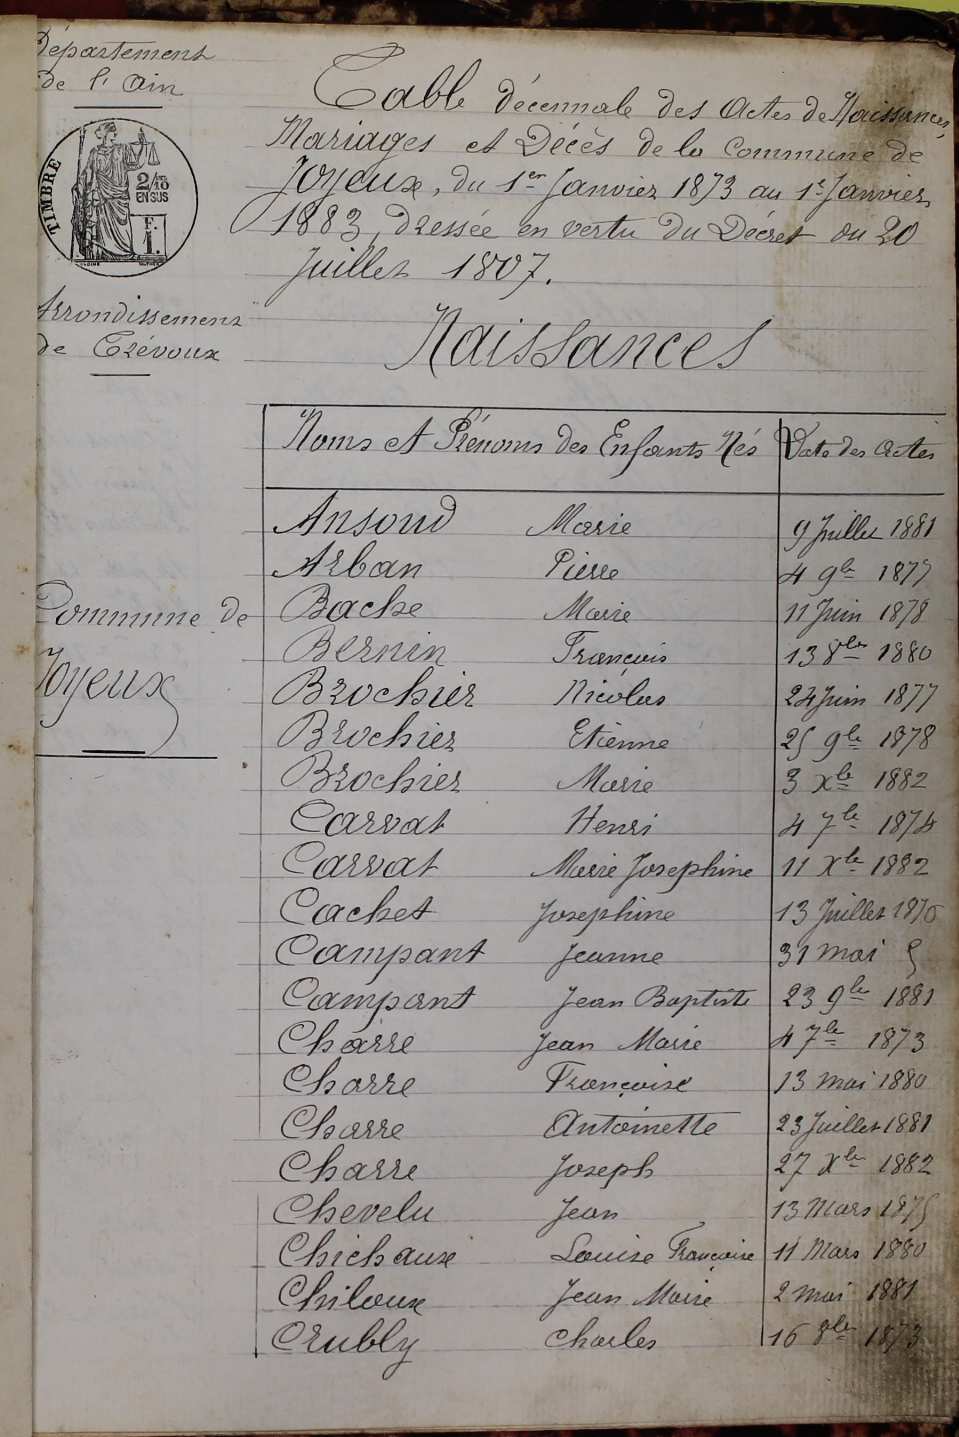 Département
de l'Ain
TIMBRE
2/10
EN SUS
F.
1.
Arrondissement
de Trévoux
Commune de
Joyeux
Table décennale des Actes de Naissances,
Mariages et Décès de la Commune de
Joyeux, du 1er Janvier 1873 au 1r Janvier
1883, dressée en vertu du Décret du 20
Juillet 1807.
Naissances
Noms et Prénoms des Enfants Nés Date des actes
Ansoud Marie 9 Juillet 1881
Arban Pierre 4 9bre 1877
Bache Marie 11 Juin 1878
Bernin François 13 8bre 1880
Brochier Nicolas 24 Juin 1877
Brochier Etienne 25 9bre 1878
Brochier Marie 3 Xbre 1882
Carvat Henri 4 7bre 1874
Carvat Marie Josephine 11 Xbre 1882
Cachet Josephine 13 Juillet
Campant Jeanne 31 mai
Campant Jean Baptiste 23 9bre 1881
Charre Jean Marie 4 7bre 1873
Charre Françoise 13 mai 1880
Charre Antoinette 23 Juillet 1881
Charre Joseph 27 Xbre 1882
Chevelu Jean 13 Mars 1875
Chichoux Louise Françoise 11 Mars 1880
Chiloux Jean Marie 2 mai 1881
Crubly Charles 16 8bre 1873